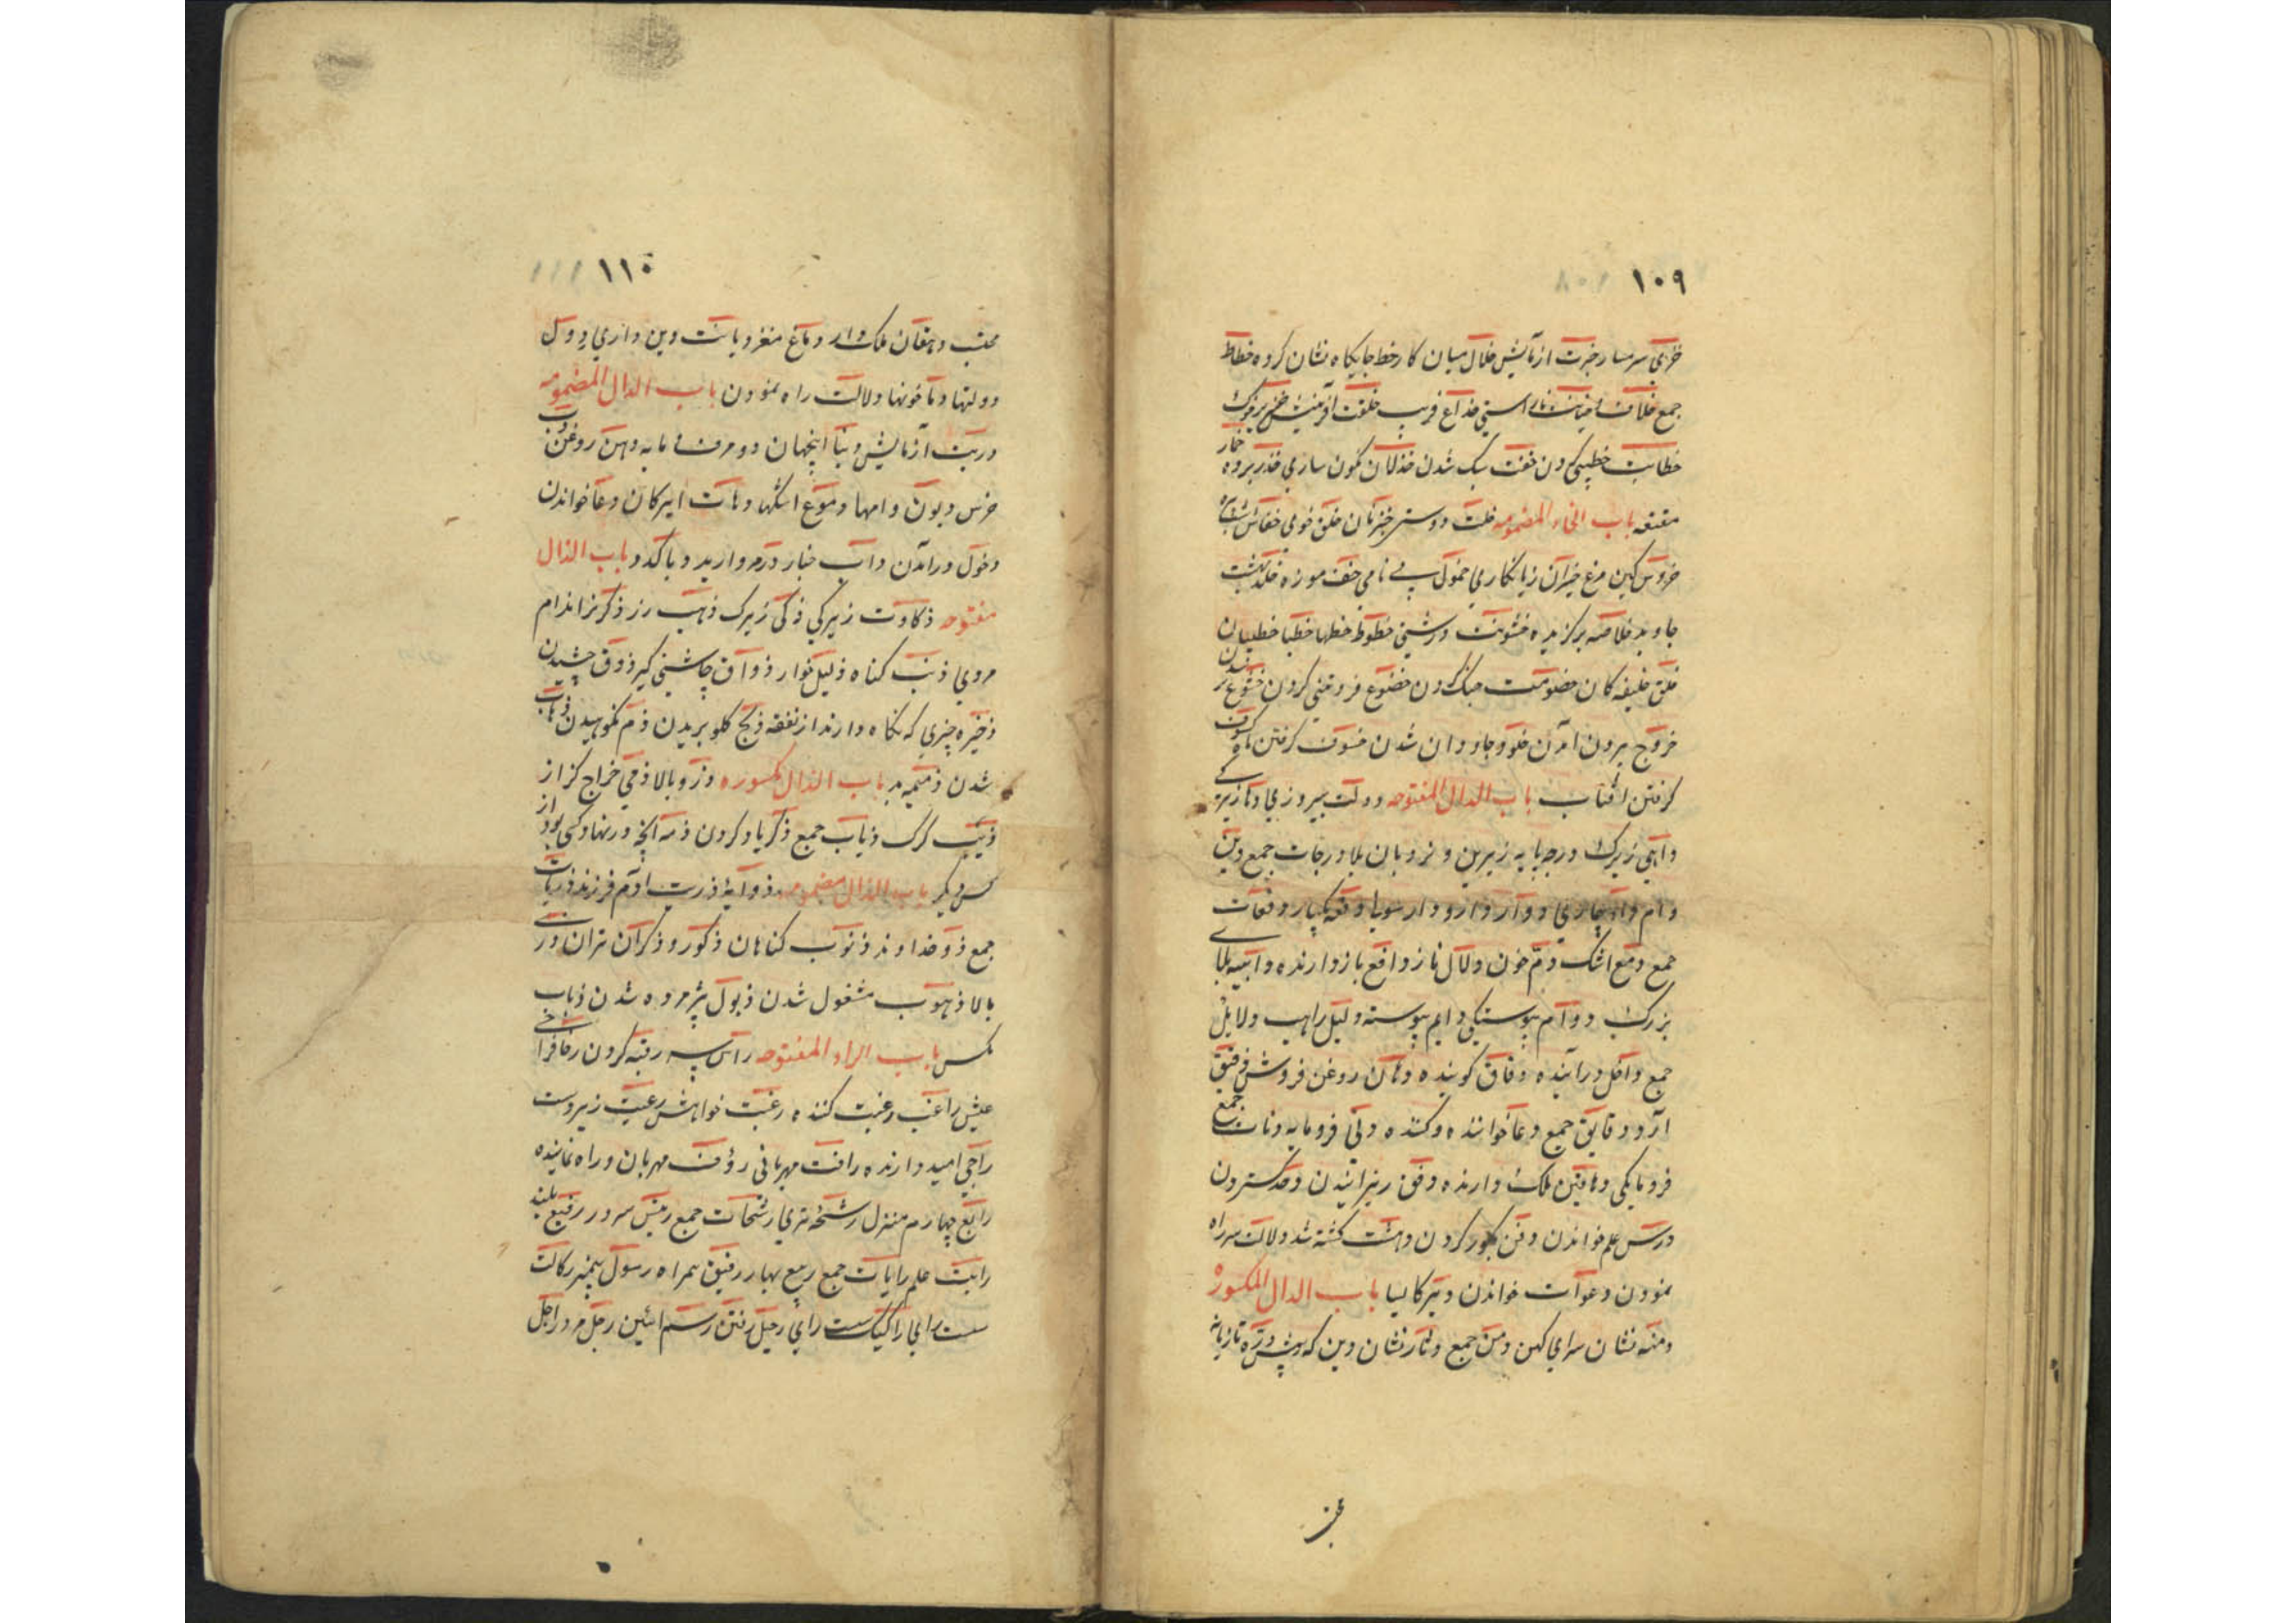 ۱۰۹
خزی سرمسار خبرت ازمایش خلال میان کار خط جایکاه نشان کرده خطاط
جمع خلاف خیانت ناراستی خداع فریب خلقت آفرینش
خطابت خطیبی کردن خفت سبک شدن خذلان نکون ساری خدر پرده خمار
مقنعه باب الخاء المضمومه خلت دوستی خسران خلق خوی خفاش شب پره
خروس کهن مرغ خسران زیانکاری خمول بی نامی خف موزه خلد بهشت
جاوید خلاصه برکزیده خشونت درشتی خطوط خطها خطبا خطیبان
خلق خلیفه کان خصومت جنک کردن خضوع فروتنی کردن خشوع
خروج بیرون امدن خلود جاودان شدن خسوف کرفتن ماه کسوف
کرفتن افتاب باب الدال المفتوحه دولت پیروزی دها زیرکی
داهی زیرک درجه پایه زیرین و نردبان بلا درجات جمع دین
وام داء بیماری دوار دارو دار سویا دفعه یکبار دفعات
جمع دمع اشک دم خون دلال ناز دافع بازدارنده داهیه بلای
بزرک دوام پیوستکی دایم پیوسته دلیل راهب دلایل
جمع داخل درآینده دقاق کوبنده دهان روغن فروش دقیق
آرد دقایق جمع دعا خواننده و کننده دنی فرومایه دنات جمع
فرومایکی دهاقین ملک دارنده دفق ریزانیدن دحو کستردن
درس علم خواندن دفن بکور کردن دهشت کشته شد دلالت سر راه
نمودن دعوات خواندن دیر کالیسا باب الدال المکسور
دمنه نشان سرای کهن دمن جمع دثار نشان دین که پیش دره تازیانه
محتسب
۱۱۰
محتسب دهقان ملک دار دماغ مغز دیانت دین داری دول
دولتها دما خونها دلالت راه نمودن باب الدال المضمومه
دربت آزمایش دنیا اینجهان دون فرومایه دهن روغن دب
خرس دیون وامها دموع اشکها دهات زیرکان دعا خواندن
دخول درآمدن داب خبار در مروارید دیا کدو باب الذال
مفتوحه ذکاوت زیرکی ذکی زیرک ذهب زر ذکر نر اندام
مردی ذنب کناه ذلیل خوار ذواق چاشنی کیر ذوق چشیدن
ذخیره چیزی که نکاه دارند از نفقه ذبح کلو بریدن ذم نکوهیدن ذهاب
شدن ذمیمه بد باب الذال مکسوره ذروبالا ذمی خراج کزار
ذئب کرک ذیاب جمع ذکر یاد کردن ذمه آنچه در نهاد کسی بود از
کس دیکر باب الذال مضمومه ذوابه ذریت آدم فرزند ذریات
جمع ذو خداوند ذنوب کناهان ذکور و ذکران نران ذری
بالا ذهوب مشغول شدن ذبول پژمرده شدن ذباب
مکس باب الراء المفتوحه راس سر رقبه کردن رفا فراخی
عیش راغب رغبت کننده رغبت خواهش رعیت زیردست
راجی امید دارنده رافت مهربانی رؤف مهربان و راه نماینده
رابع چهارم منزل رشحه تری رشحات جمع رئیس سرور رفیع بلند
رایت علم رایات جمع ربیع بهار رفیق همراه رسول پیغمبر رکاکت
سست رایی رکیک سست رای رحیل رفتن رسم ائین رجل مرد راجل